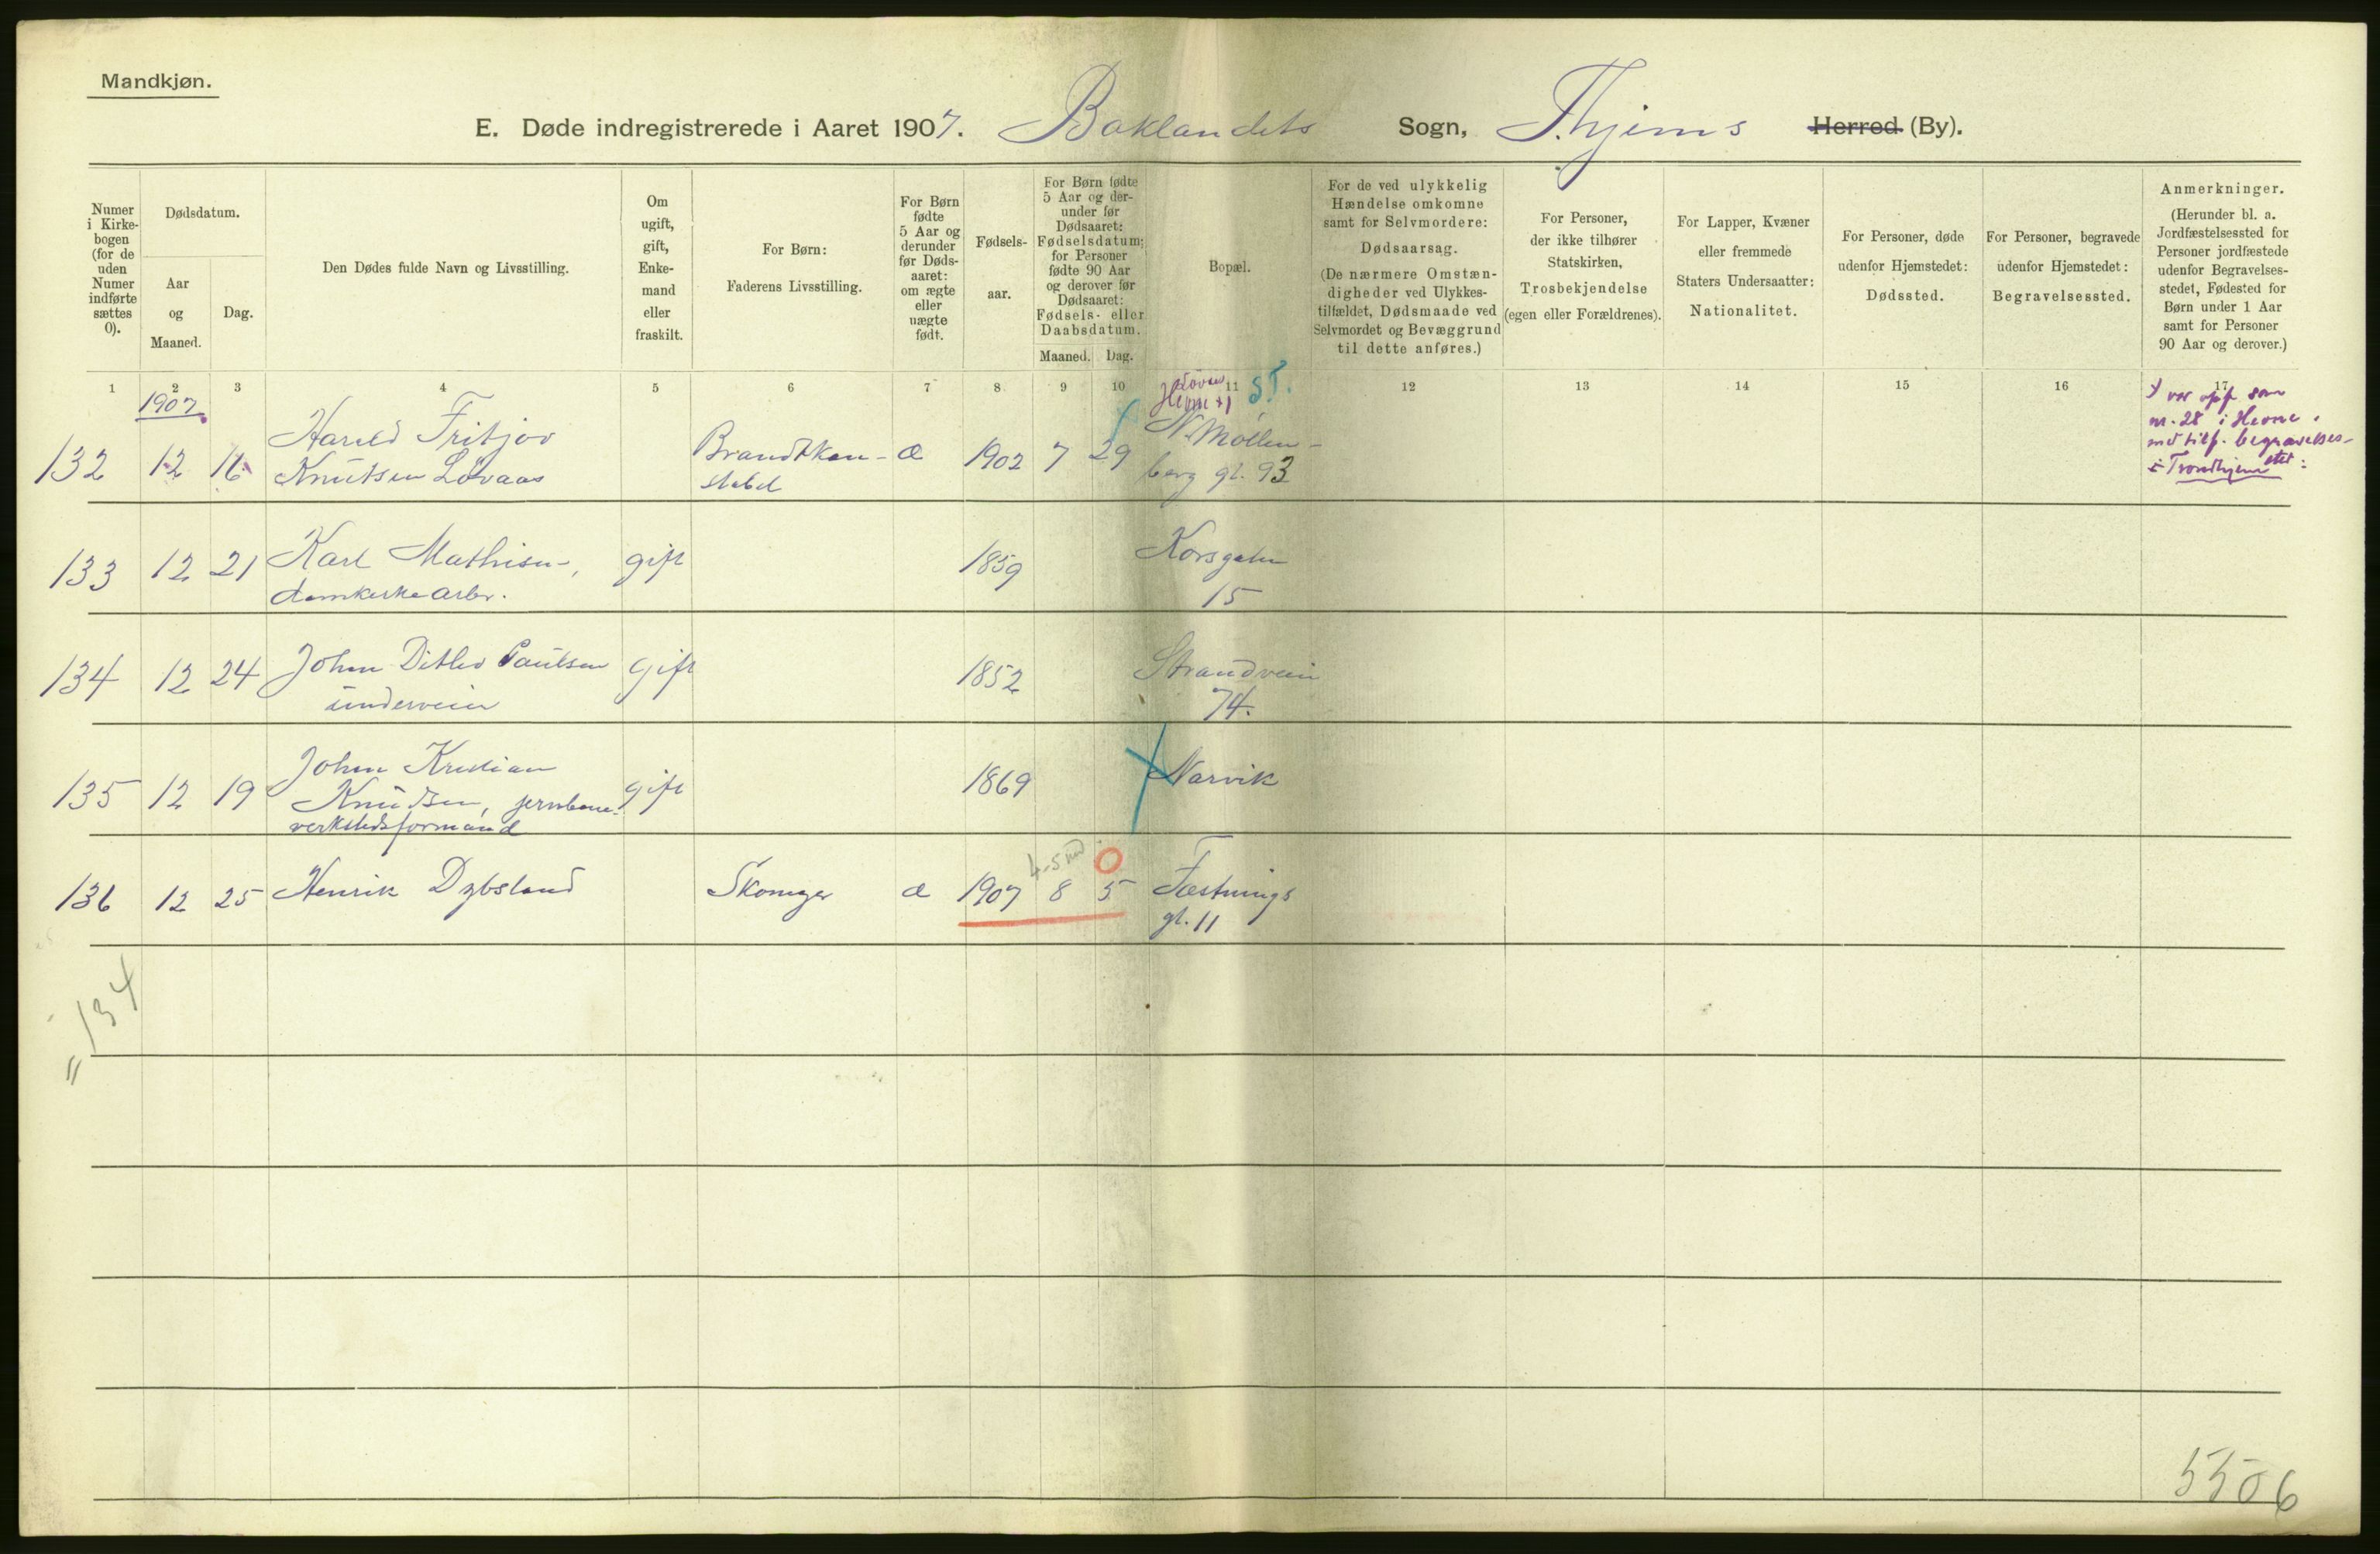 Mandkjøn.
E. Døde indregistrerede i Aaret 1907. Baklandets Sogn, Thjems Herred (By).
Numer i Kirkebogen (for de uden Numer indførte sættes 0).
Dødsdatum.
Aar og Maaned.
Dag.
Den Dødes fulde Navn og Livsstilling.
Om ugift, gift, Enkemand eller fraskilt.
For Børn:
Faderens Livsstilling.
For Børn fødte 5 Aar og derunder før Dødsaaret: om ægte eller uægte født.
Fødselsaar.
For Børn fødte 5 Aar og derunder før Dødsaaret: Fødselsdatum; for Personer fødte 90 Aar og derover før Dødsaaret: Fødsels- eller Daabsdatum.
Maaned. Dag.
Bopæl.
For de ved ulykkelig Hændelse omkomne samt for Selvmordere:
Dødsaarsag.
(De nærmere Omstændigheder ved Ulykkestilfældet, Dødsmaade ved Selvmordet og Bevæggrund til dette anføres.)
For Personer, der ikke tilhører Statskirken,
Trosbekjendelse
(egen eller Forældrenes).
For Lapper, Kvæner eller fremmede Staters Undersaatter:
Nationalitet.
For Personer, døde udenfor Hjemstedet:
Dødssted.
For Personer, begravede udenfor Hjemstedet:
Begravelsessted.
Anmerkninger.
(Herunder bl. a. Jordfæstelsessted for Personer jordfæstede udenfor Begravelsesstedet, Fødested for Børn under 1 Aar samt for Personer 90 Aar og derover.)
1 2 3 4 5 6 7 8 9 10 11 12 13 14 15 16 17
1907
Hevne x) S.T.
x var opf. som
nr. 28 i Hevne.
med tilf. begravelses-
sted:
i Trondhjem
132 12 16 Harald Fritjov
Knutsen Lövaas
Brandkon-
stabel
æ 1902 7 29 N. Møllen-
berg gt. 93
133 12 21 Karl Mathisen,
domkirkearbr.
gift 1859 Korsgaten
15
134 12 24 John Ditlev Paulsen
underveier
gift 1852 Strandvein
74.
135 12 19 Johan Kristian
Knudsen, jernbane-
verkstedsformand
gift 1869 Narvik
4-5 md. O
136 12 25 Henrik Dybsland Skomager æ 1907 8 5 Fæstnings
gt. 11
= 134
5506